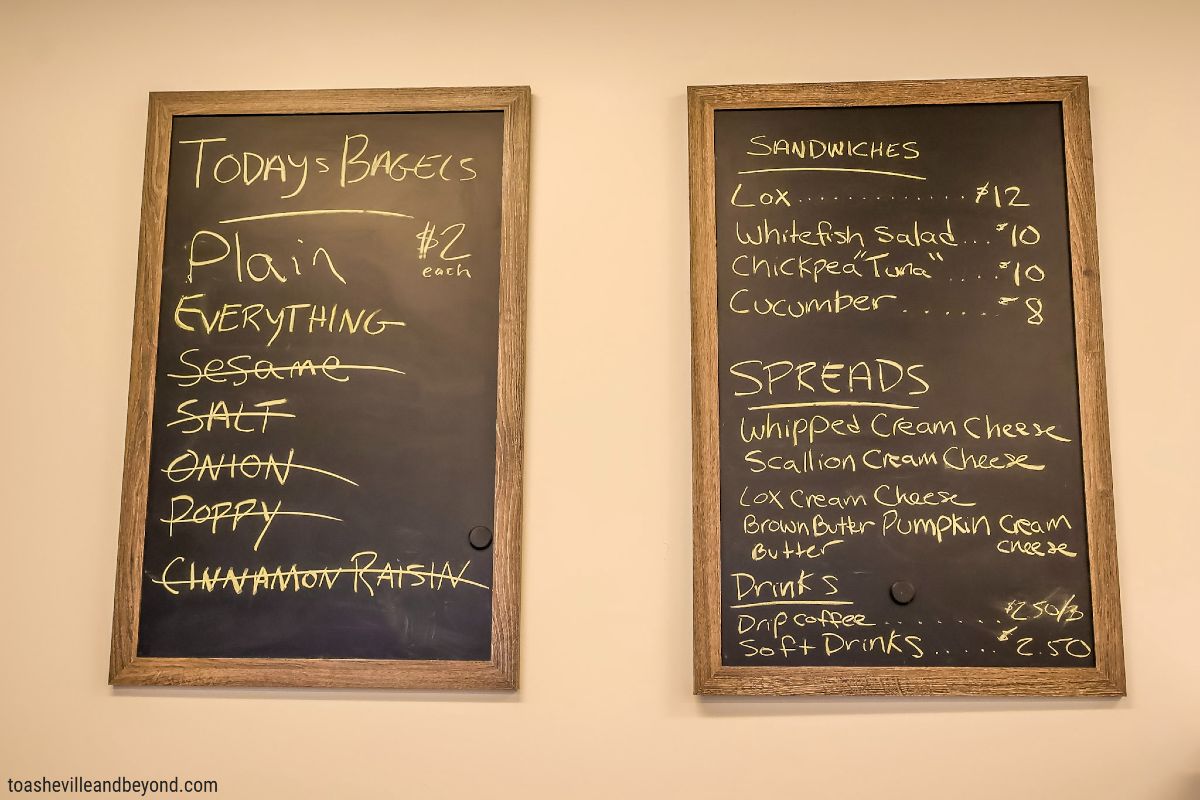 TODAYS BAGELS
Plain $2
each
EVERYTHING
Sesame
SALT
ONION
POPPY
CINNAMON RAISIN
SANDWICHES
Lox............. $12
Whitefish Salad... $10
Chickpea "Tuna" .... $10
Cucumber ....... $8
SPREADS
Whipped Cream Cheese
Scallion Cream Cheese
Lox Cream Cheese
Brown Butter Pumpkin Cream
Butter cheese
Drinks
Drip coffee......... $2.50/3
Soft Drinks ..... $2.50
toashevilleandbeyond.com